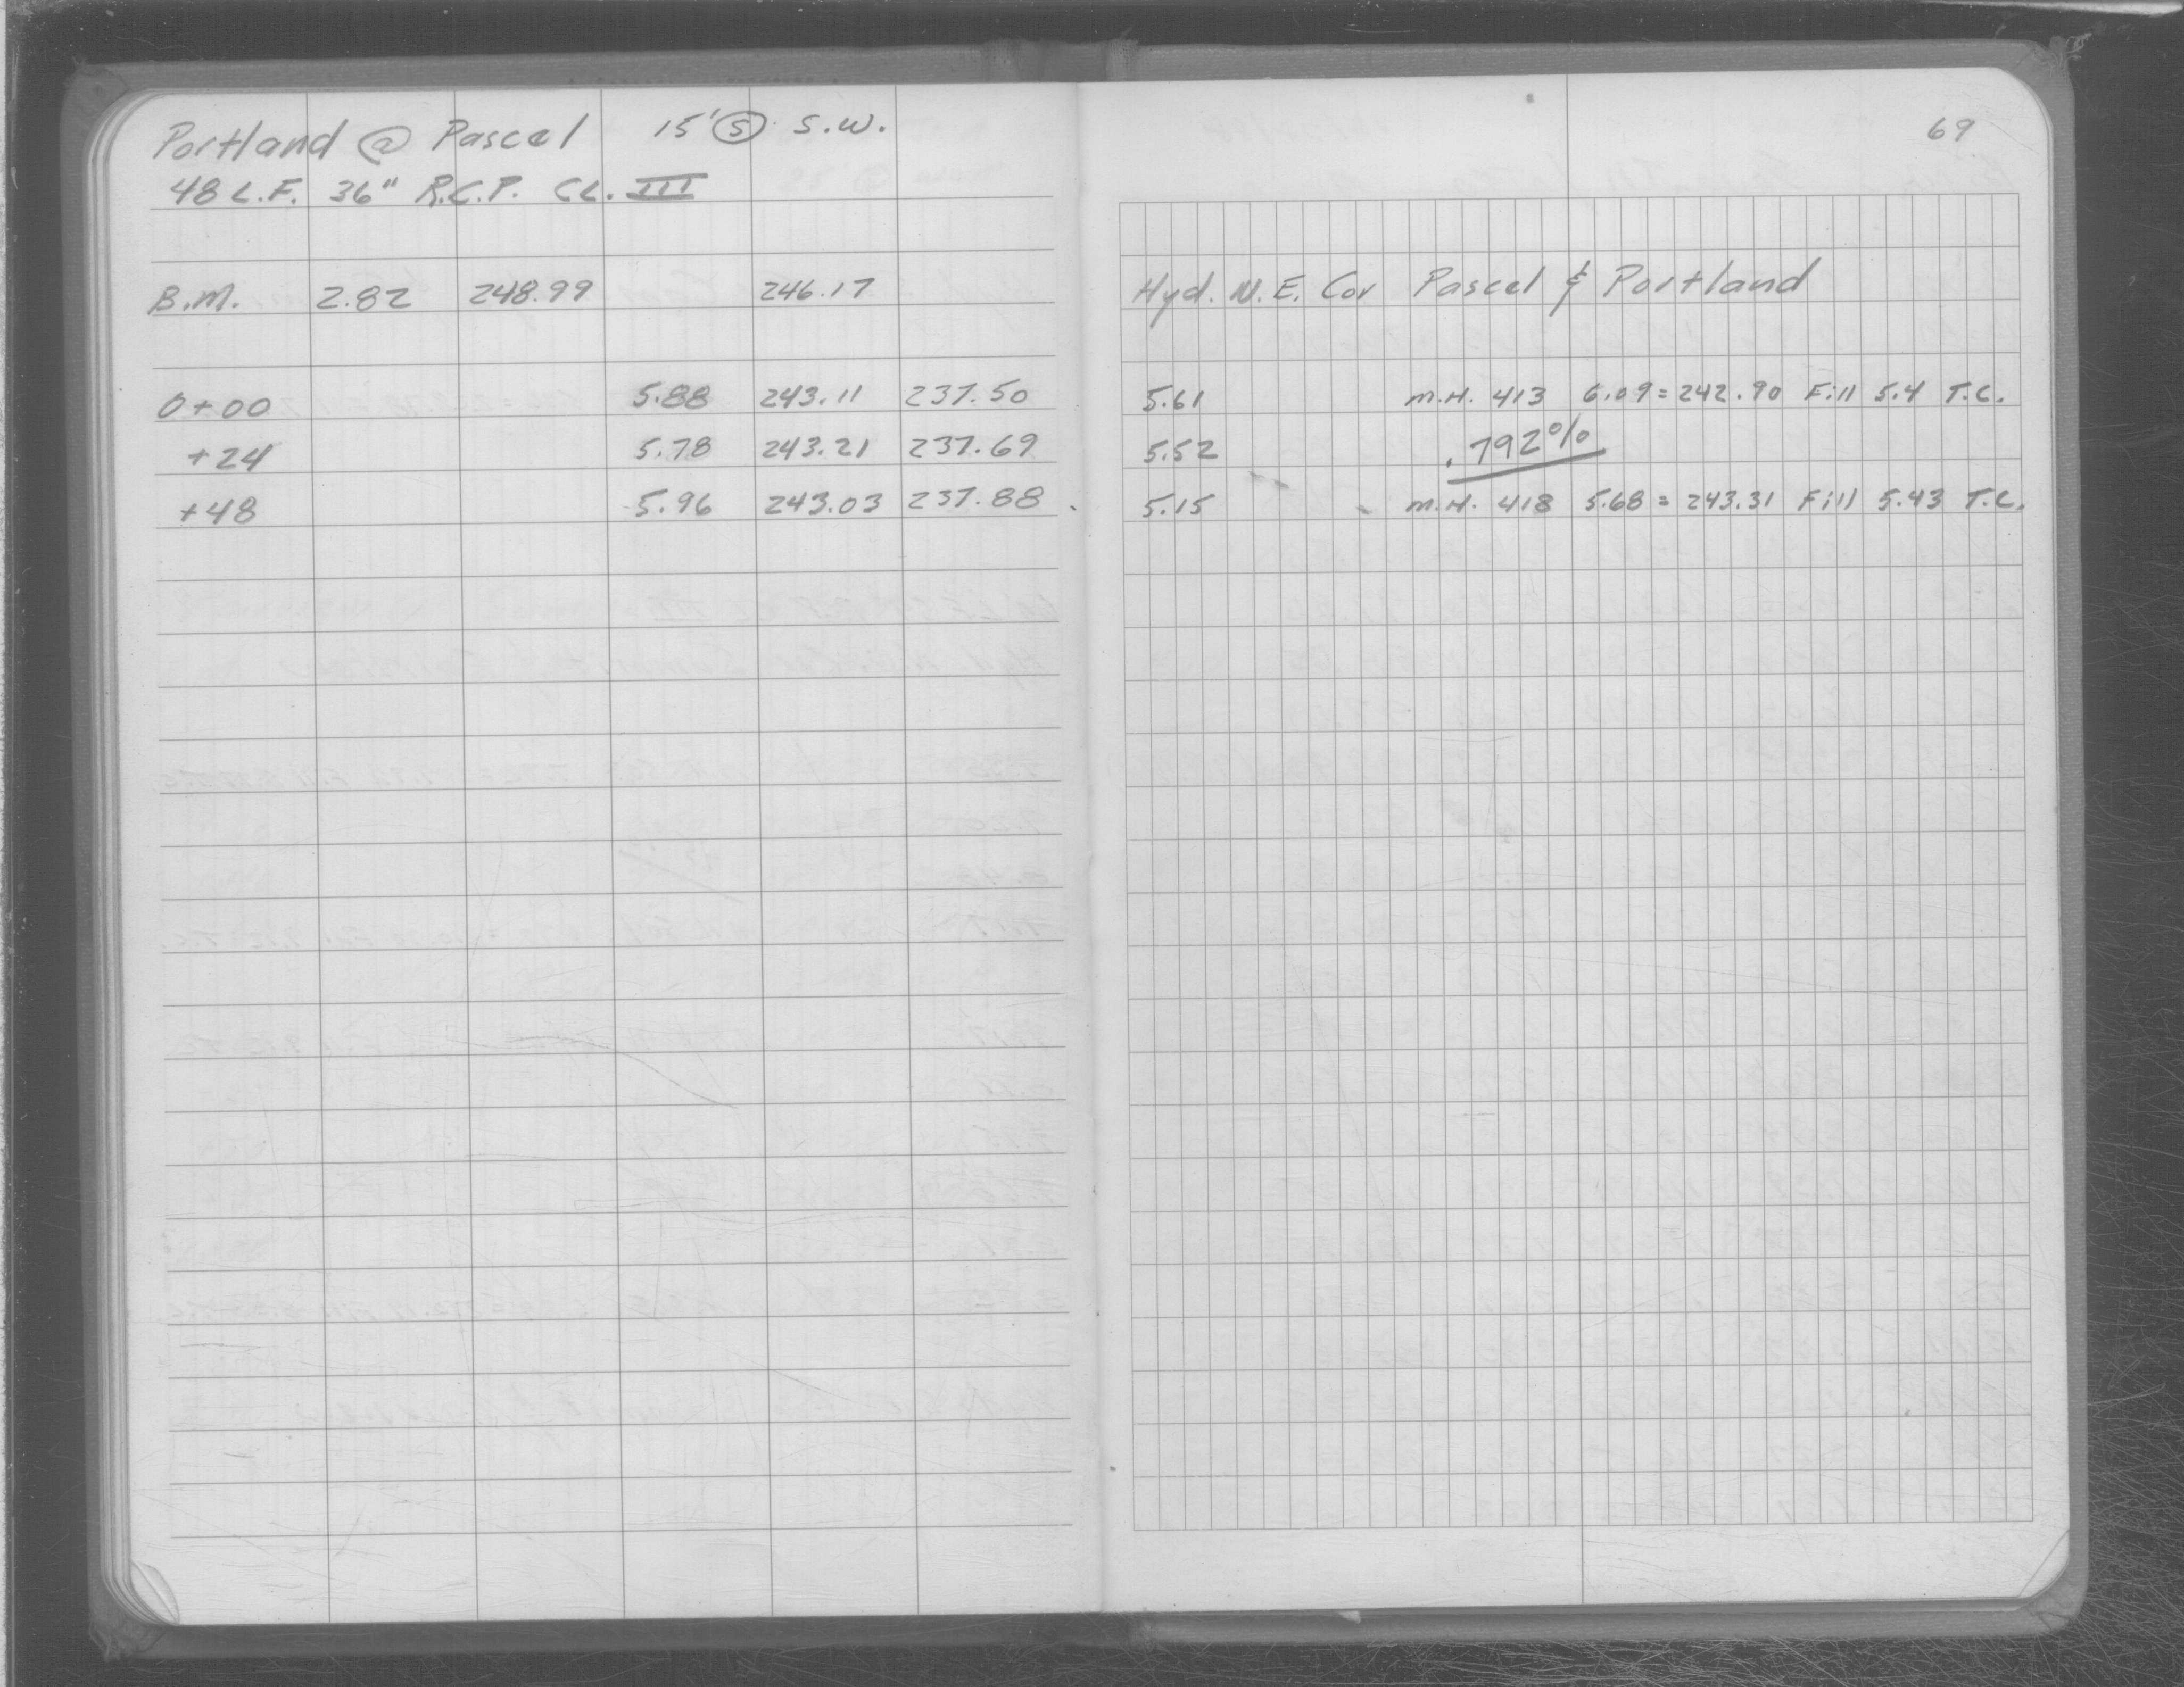 Portland @ Pascel 15' Ⓢ S.W.
48 L.F. 36" R.C.P. CL. III
69
B.M. 2.82 248.99 246.17 Hyd. N.E. Cor Pascel & Portland
0+00 5.88 243.11 237.50 5.61 M.H. 413 6.09 = 242.90 Fill 5.4 T.C.
+24 5.78 243.21 237.69 5.52 .792%
+48 5.96 243.03 237.88 5.15 M.H. 418 5.68 = 243.31 Fill 5.43 T.C.